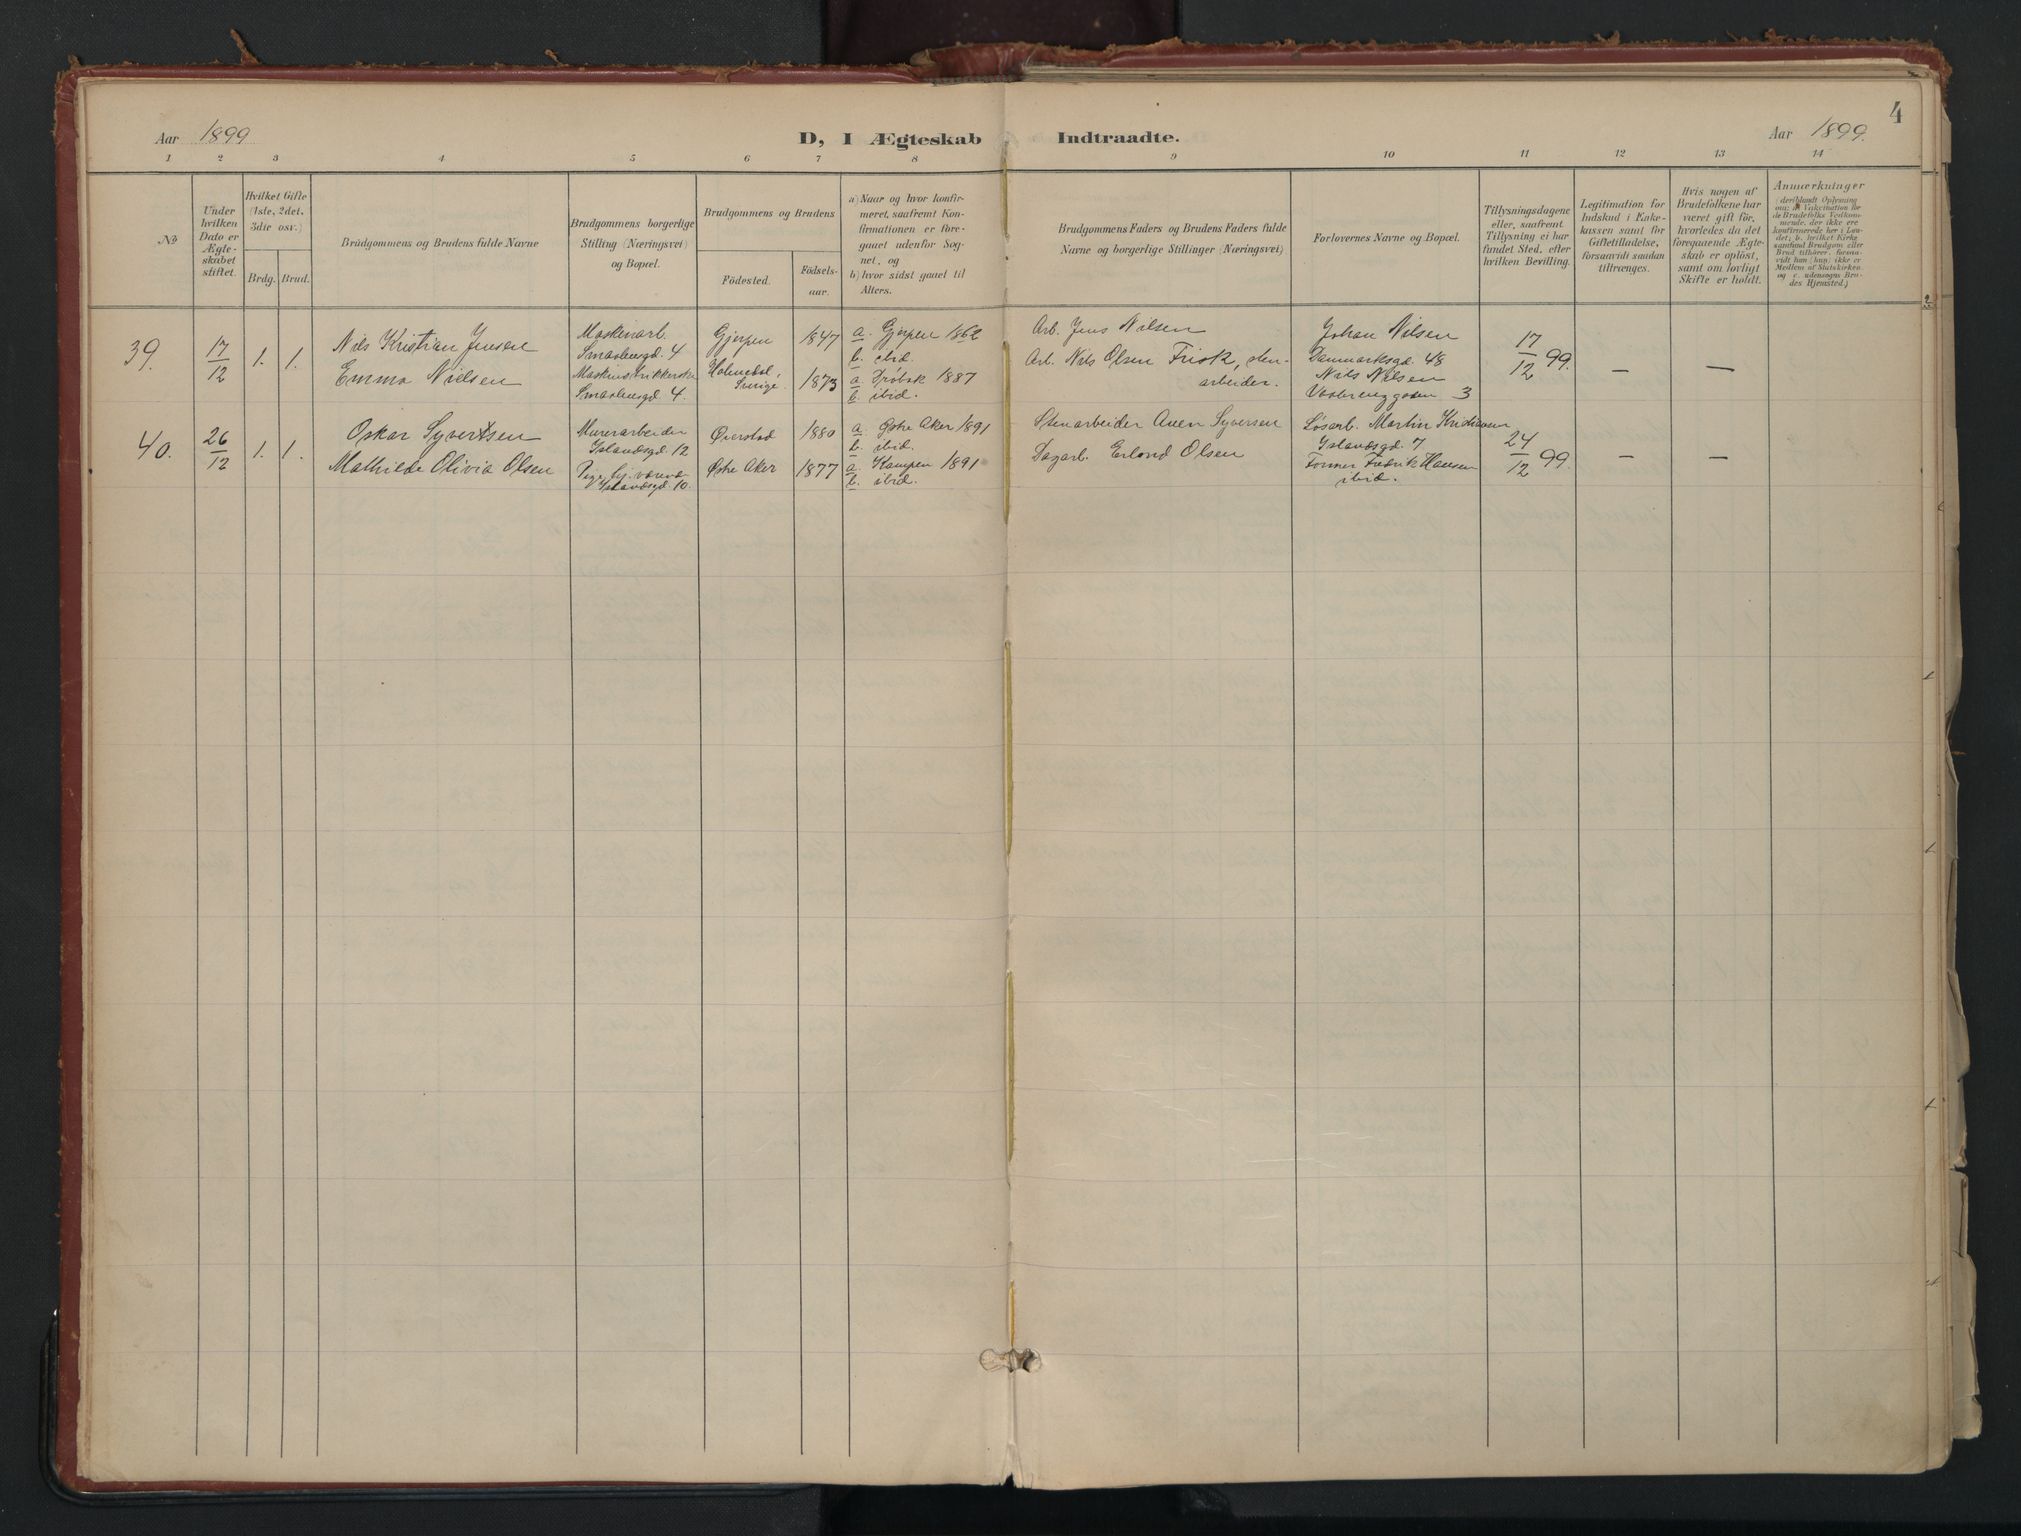 4
Aar 1899
D, I Ægteskab Indtraadte.
Aar 1899.
1 2 3 4 5 6 7 8 9 10 11 12 13 14
No
Under hvilken Dato er Ægte-skabet stiftet.
Hvilket Gifte (1ste, 2det, 3die osv.)
Brdg. Brud.
Brudgommens og Brudens fulde Navne
Brudgommens borgerlige Stilling (Næringsvei) og Bopæl.
Brudgommens og Brudens
Födested.
Födsels-aar.
a) Naar og hvor konfir-meret, saafremt Kon-firmationen er fore-gaaet udenfor Sog-net, og
b) hvor sidst gaaet til Alters.
Brudgommens Faders og Brudens Faders fulde Navne og borgerlige Stillinger (Næringsvei)
Forlovernes Navne og Bopæl.
Tillysningsdagene eller, saafremt Tillysning ei har fundet Sted, efter hvilken Bevilling.
Legitimation for Indskud i Enke-kassen samt for Giftetilladelse, forsaavidt saadan tiltrænges.
Hvis nogen af Brudefolkene har været gift för, hvorledes da det foregaaende Ægte-skab er oplöst, samt om lovligt Skifte er holdt.
Anmærkninger
39. 17/12 1. 1.
Nils Kristian Jensen
Maskinarb.
Smaalensgd. 4
Gjerpen 1847
a. Gjerpen 1862
b. ibid.
Arb. Jens Nilsen
Johan Nilsen
Danmarksgd. 48
17/12 99. — —
Emma Nielsen
Smaalensgd 4.
Holmedal, Sverige. 1873
a. Drøbak 1887
b. ibid.
Arb. Nils Olsen Frisk, sten-
arbeider.
Nils Nilsen
3
40. 26/12 1. 1.
Oskar Syvertsen
Murerarbeider
Islandsgd. 12
1880
a. Østre Aker 1891
b. ibid.
Stenarbeider Syversen
Løsarb. Martin Kristiansen
Islandsgd. 7
24/12 99. — —
Mathilde Olivia Olsen
Islandsgd. 10.
Østre Aker 1877
a. Kampen 1891
b. ibid.
Dagarb. Erland Olsen
Former Fredrik Hansen
ibid.